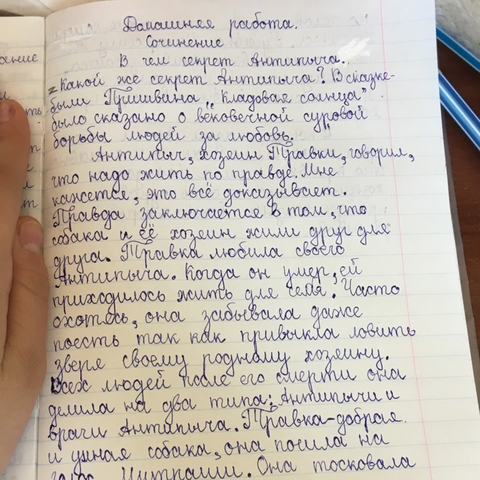 Домашняя работа.
Сочинение
В чём секрет Антипыча.
Какой же секрет Антипыча? В сказке-
были Пришвина „Кладовая солнца"
было сказано о вековечной суровой
борьбы людей за любовь.
Антипыч, хозяин Травки, говорил,
что надо жить по правде. Мне
кажется, это всё доказывает.
Правда заключается в том, что
собака и её хозяин жили друг для
друга. Травка любила своего
Антипыча. Когда он умер, ей
приходилось жить для себя. Часто
охотясь, она забывала даже
поесть так как привыкла ловить
зверя своему родному хозяину.
Всех людей после его смерти она
делила на два типа: Антипычи и
враги Антипыча. Травка-добрая
и умная собака, она пошла на
голос Митраши. Она тосковала